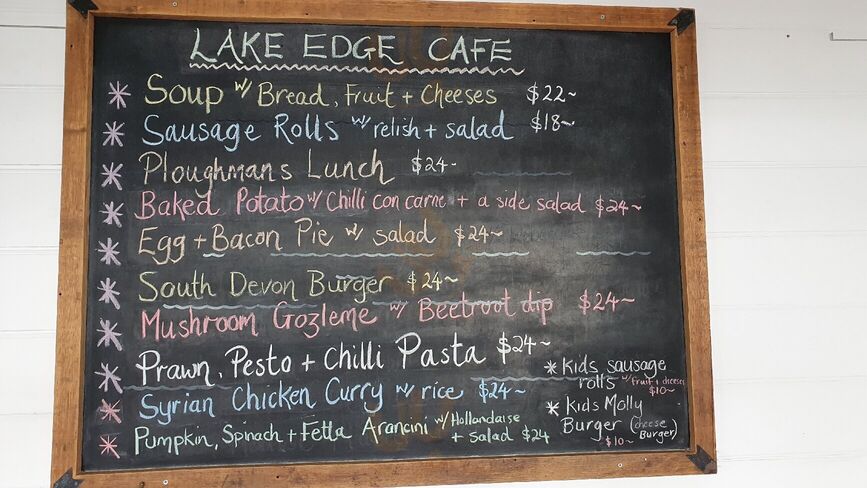 LAKE EDGE CAFE
* Soup w/ Bread, Fruit + Cheeses $22~
* Sausage Rolls w/ relish + salad $18~
* Ploughmans Lunch $24-
* Baked Potato w/ Chilli con carne + a side salad $24~
* Egg + Bacon Pie w/ salad $24~
* South Devon Burger $24~
* Mushroom Gozleme w/ Beetroot dip $24~
* Prawn, Pesto + Chilli Pasta $24~
* Syrian Chicken Curry w/ rice $24~
* Pumpkin, Spinach + Fetta Arancini w/ Hollandaise
+ Salad $24
* Kids sausage
rolls w/ fruit + cheeses
$10~
* Kids Molly
Burger (cheese
Burger)
$10~